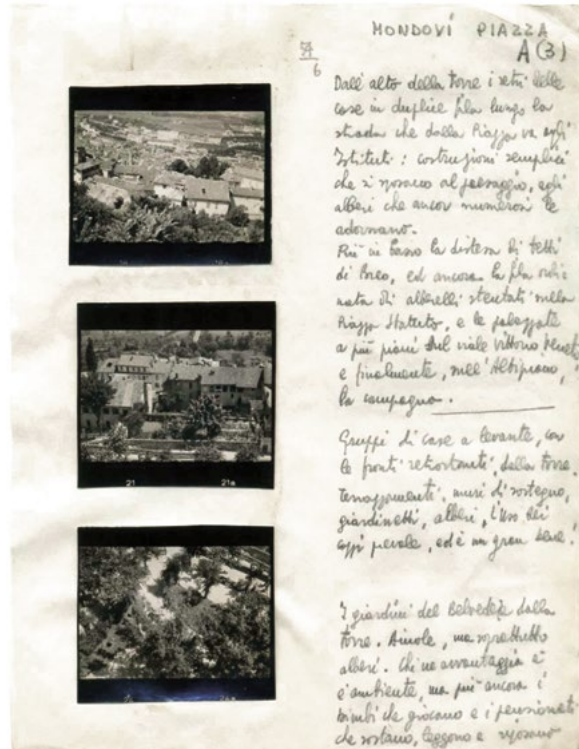 MONDOVÍ PIAZZA
A (3)
6
Dall'alto della torre i retri delle
case in duplice fila lungo la
strada che dalla Piazza va agli
Istituti: costruzioni semplici
che si sposano al paesaggio, agli
alberi che ancor numerosi le
adornano.
Più in basso la distesa di tetti
di Breo, ed ancora la fila ordi
nata di alberelli stentati nella
Piazza Statuto, e le palazzate
a più piani sul viale Vittorio Veneto
e finalmente, nell'Altipiano,
la campagna.
Gruppi di case a levante, con
le fronti retrostanti dalla torre.
terrazzamenti, muri di sostegno,
giardinetti, alberi, l'uso dei
coppi prevale, ed è un gran bene.
21 21A
I giardini del Belvedere dalla
torre. Aiuole, ma soprattutto
alberi. Chi ne avvantaggia è
l'ambiente, ma più ancora i
bimbi che giocano e i pensionati
che sostano, leggono e riposano